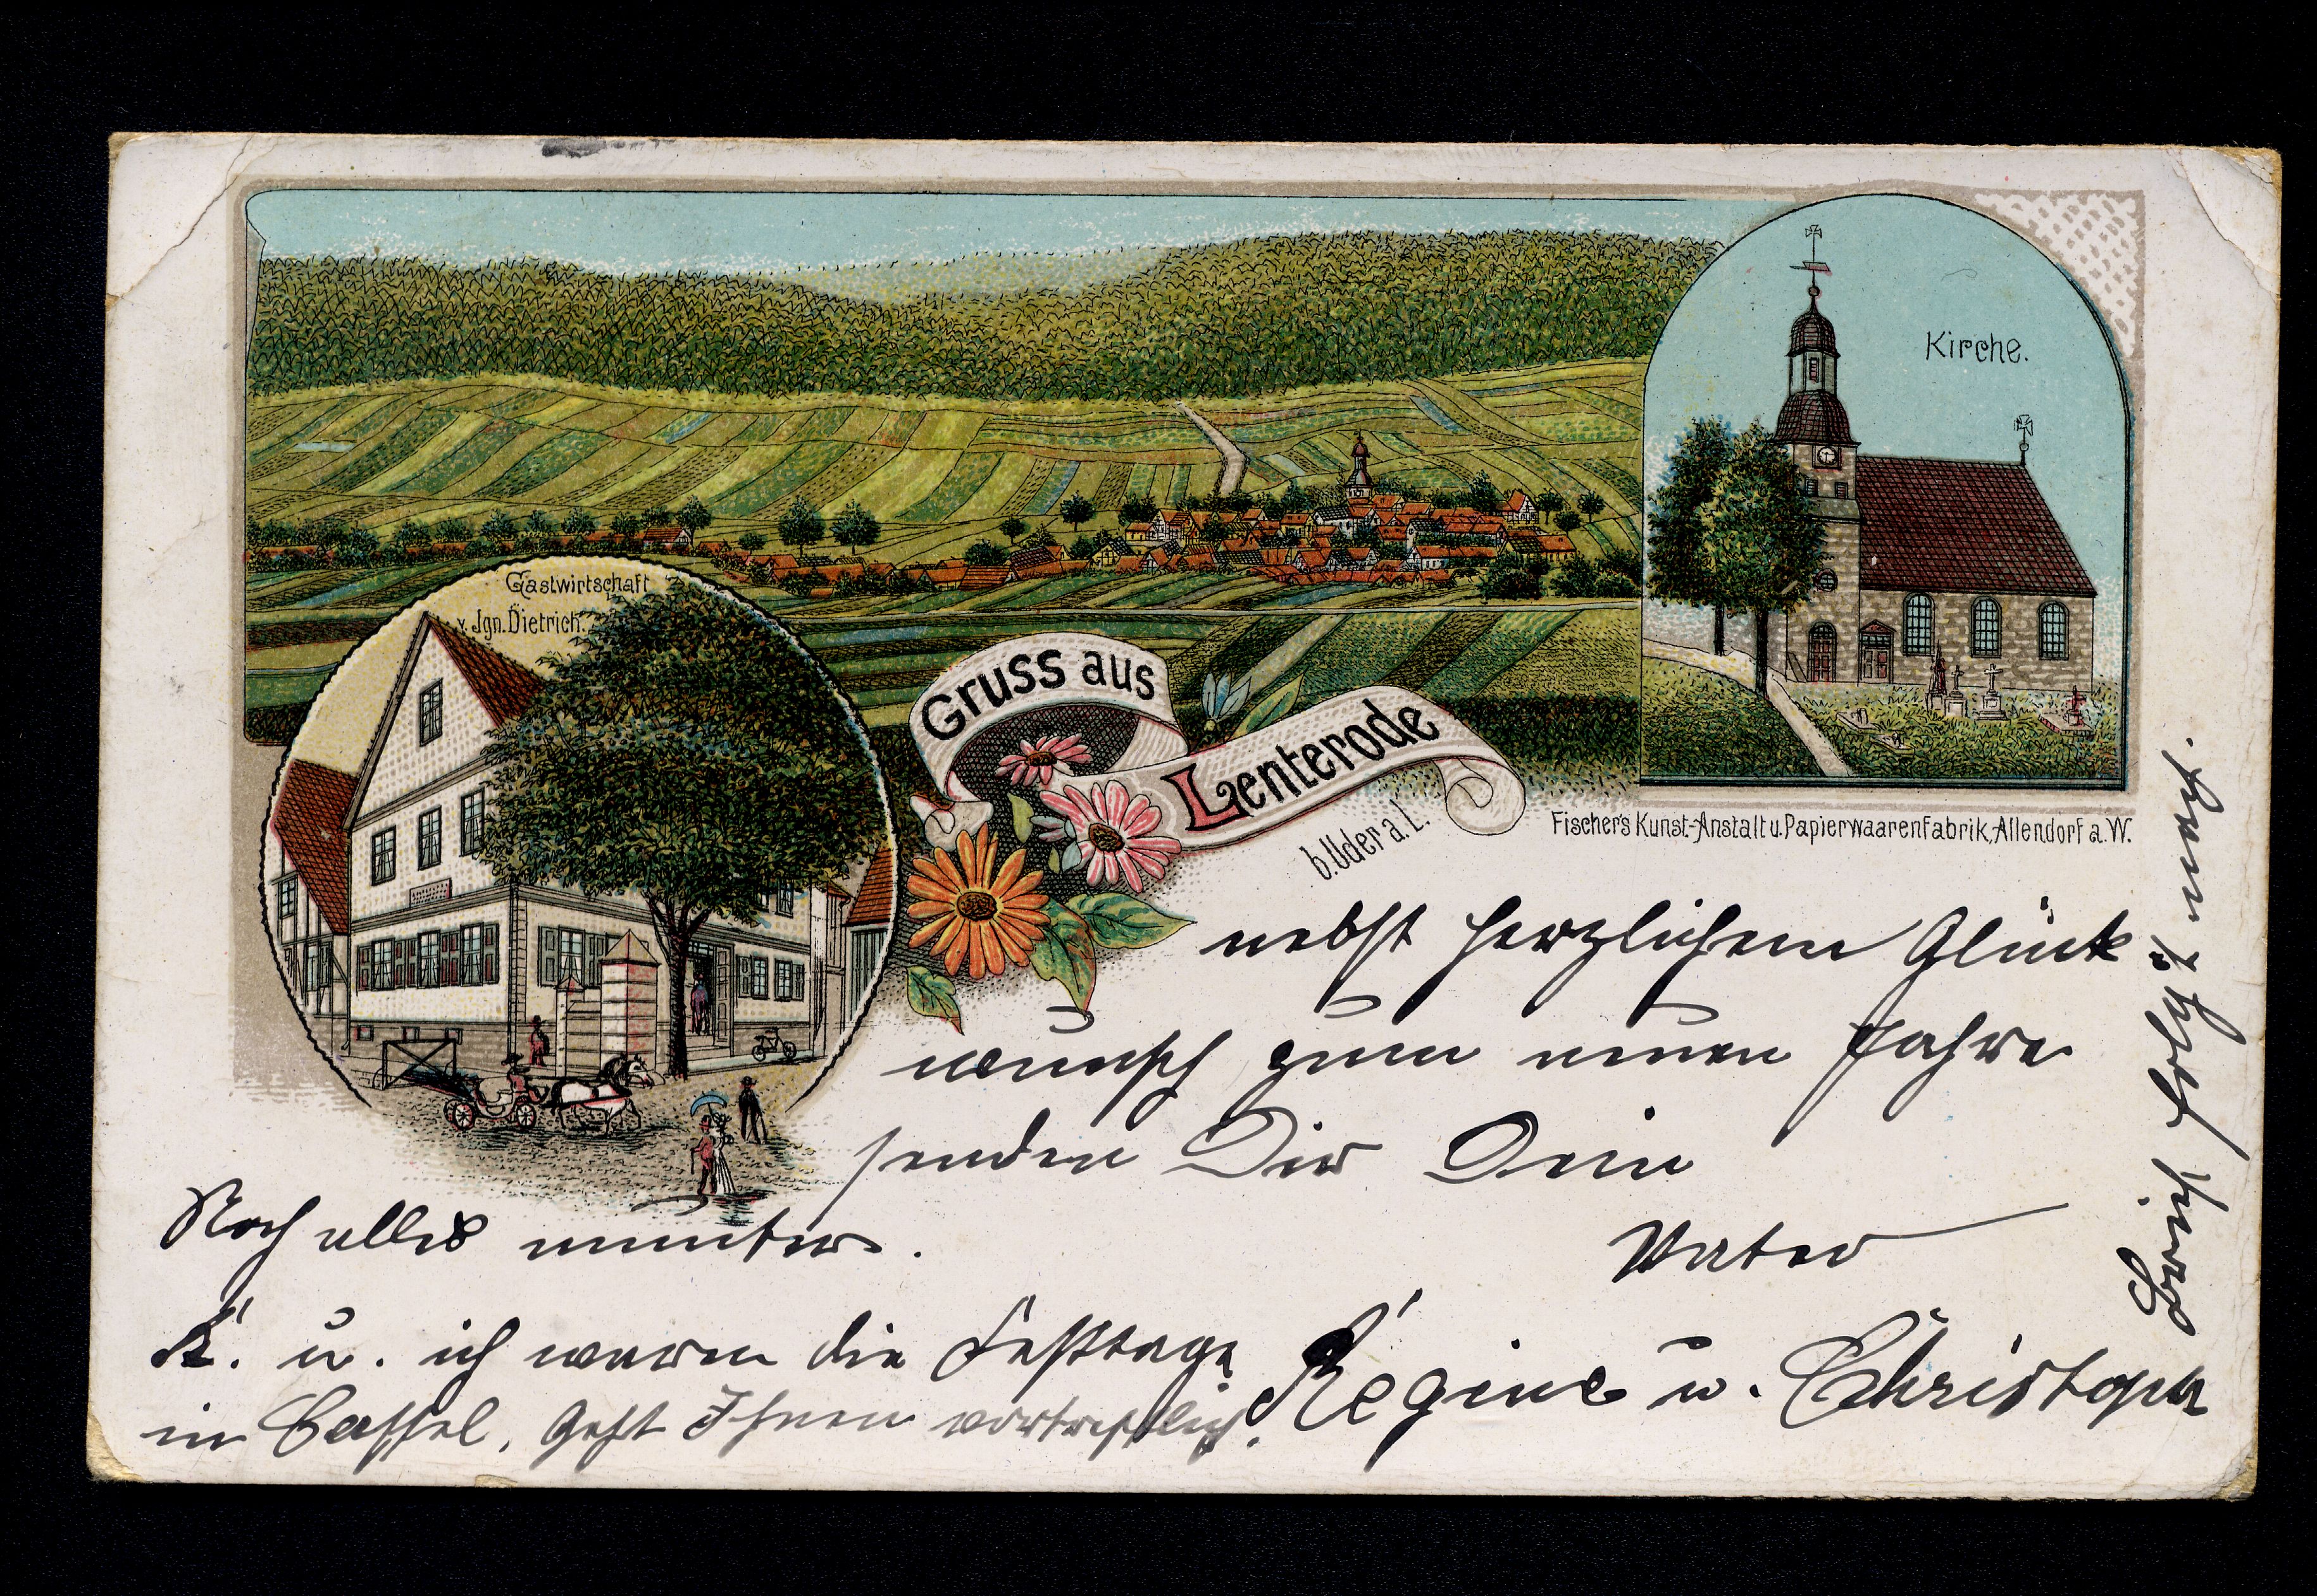 Kirche.
Gastwirtschaft
v. Jgn. Dietrich.
Gruss aus
Lenterode
b. Uder a. L.
Fischer's Kunst-Anstalt u. Papierwaarenfabrik, Allendorf a. W.
nebst herzlichem Glück
wunsch zum neuen Jahre
senden Dir Dein
Vater
Regine u. Christoph
Noch alles munter.
K. u. ich waren die Festtage
in Cassel, geht Ihnen vortrefflich.
Brief folgt nach.